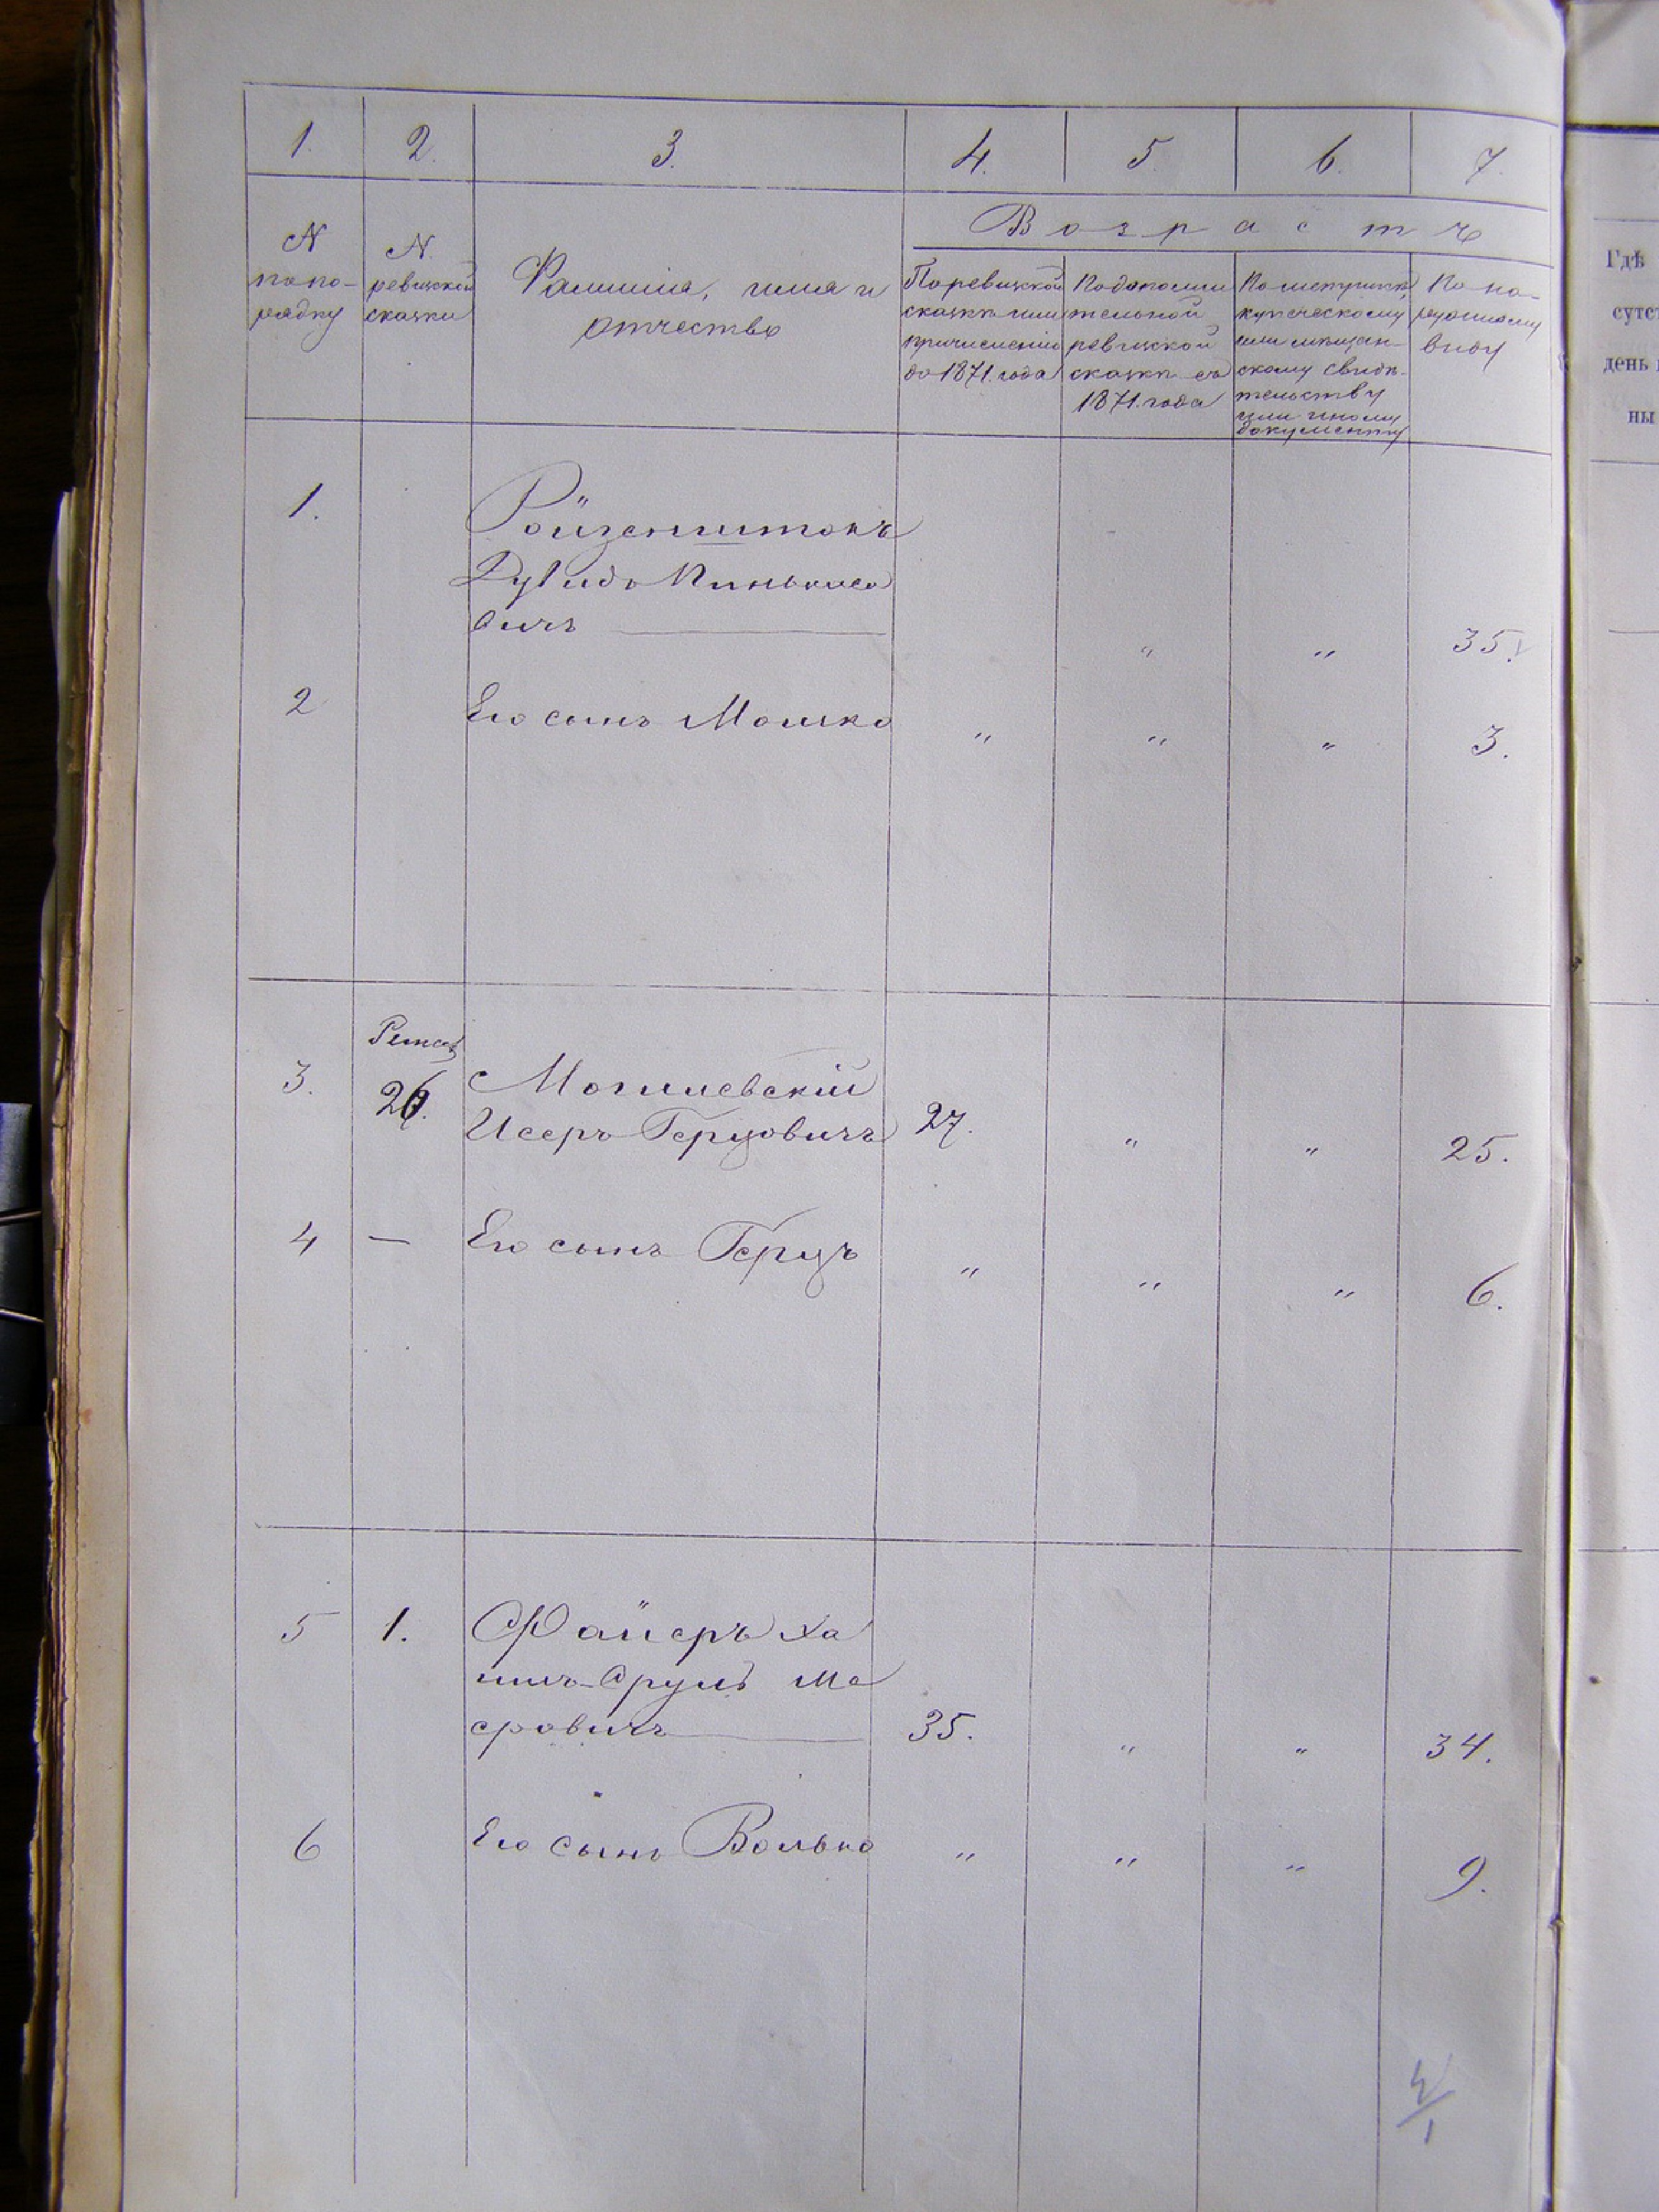 1. 2. 3. 4. 5. 6. 7.
N по по-рядку
N. ревизской сказки
Фамилія, имя и отчество
Возрастъ
По ревизской сказкѣ или причисленію до 1871. года
По дополнительной ревизской сказкѣ съ 1871. года
По метрикѣ, купеческому или мѣщан-скому свидѣ-тельству или иному документу
По на-ружному виду
1.
Ройзенштокъ
Дувидъ Пинькасо
вичъ
" " 35.
2 Его сынъ Мошко " " " 3.
3. 26. Могилевскій
Исеръ Герцовичъ 27. " " 25.
4 — Его сынъ Герцъ " " " 6.
5 1. Файеръ Ха
имъ-Сруль Ме
еровичъ 35. " " 34.
6 Его сынъ Волько " " " 9.
Гдѣ
сутст
день
ны